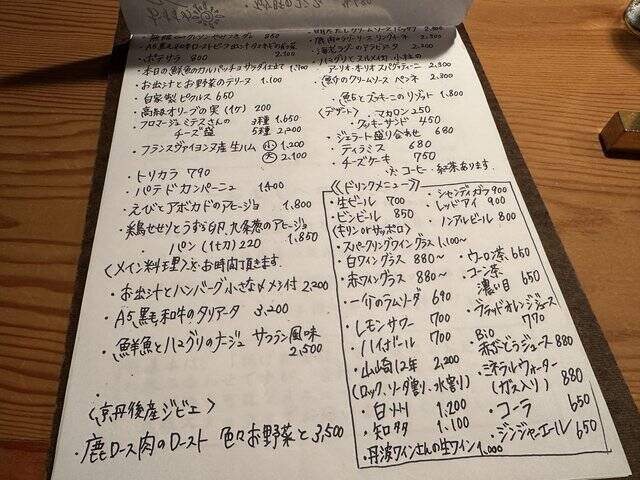 ・A5黒毛和牛ローストビーフ
・ポテサラ 800
・本日の鮮魚のカルパッチョサラダ仕立て 1,100
・お出汁とお野菜のテリーヌ 1,100
・自家製ピクルス 650
・高級オリーブの実(イタ) 200
・フロマージュ ミテスさんの 3種 1,650
チーズ盛 5種 2,200
・フランスヴァイヨンヌ産 生ハム 小 1,200
大 2,100
・トリカラ 790
・パテドカンパーニュ 1,400
・えびとアボカドのアヒージョ 1,800
・鶏せせりとうずら卵、九条葱のアヒージョ 1,850
パン(1ヒカ) 220
〈メイン料理〉お時間頂きます。
・お出汁とハンバーグ 小さな〆メン付 2,200
・A5黒毛和牛のタリアータ 3,200
・鮮魚とハマグリのナージュ サフラン風味
2,500
〈京丹後産ジビエ〉
・鹿ロース肉のロースト 色々お野菜と 3,500
2,300
・鹿肉のラグーソース リングイネ 2,300
・海老ラグーのアラビアータ 2,300
アーリオ・オーリオ スパゲティーニ 2,300
・魚介のクリームソース ペンネ 2,300
・魚介とズッキーニのリゾット 1,800
〈デザート〉・マカロン 250
・クッキーサンド 450
・ジェラート盛り合わせ 680
・ティラミス 680
・チーズケーキ 750
・コーヒー、紅茶あります。
〈ドリンクメニュー〉
・生ビール 700
・ビンビール 850
(キリンorサッポロ)
・スパークリングワイングラス 1,100~
・白ワイングラス 880~
・赤ワイングラス 880~
・ラムソーダ 690
・レモンサワー 700
・ハイボール 700
・山崎12年 2,200
(ロック、ソーダ割り、水割り)
・白州 1,200
・知多 1,100
・丹波ワインさんの生ワイン 1,000
・シャンディガフ 900
・レッドアイ 900
・ノンアルビール 800
・ウーロン茶 650
・コーン茶
濃い目 650
・ブラッドオレンジジュース
770
・Bio
赤ぶどうジュース 880
・ミネラルウォーター
(ガス入り) 880
・コーラ 650
・ジンジャーエール 650